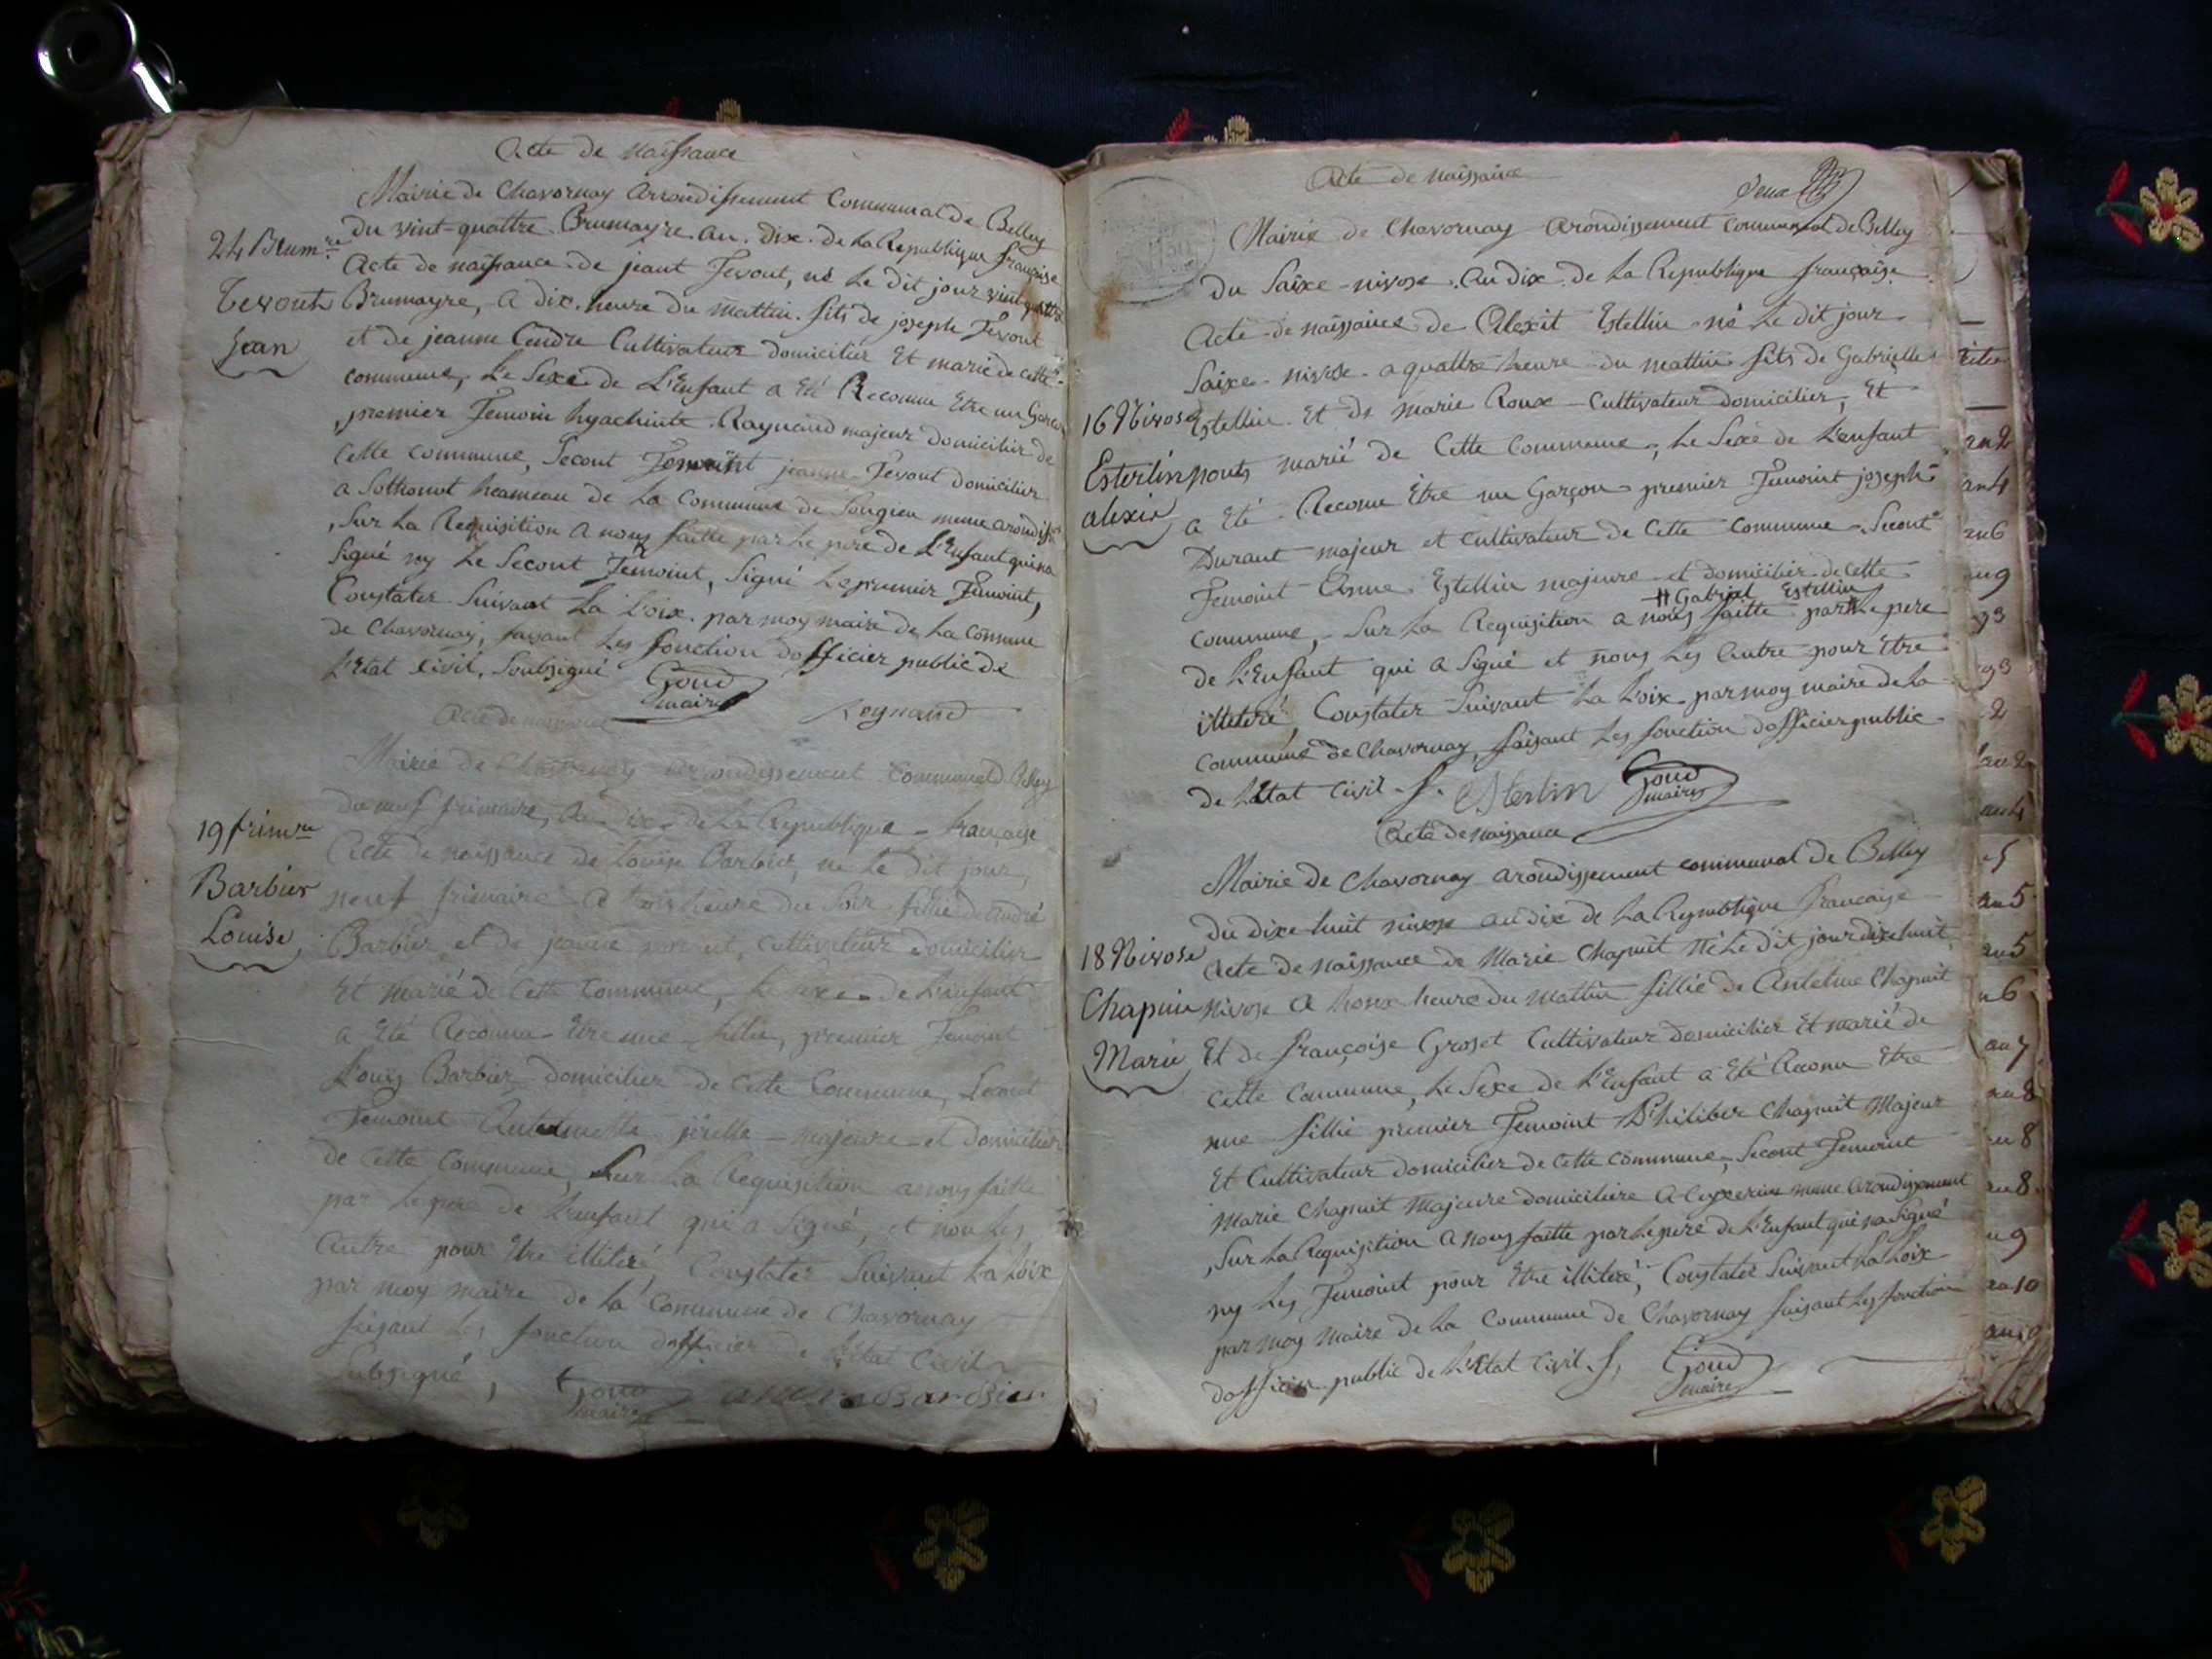 Acte de naissance
Mairie de Chavornay arrondissement Communal de Belley
du vint-quattre Brumayre an dix de la Republique française
24 Brum.re
Tevouts
Jean
Acte de naissance de jeant Tevout, né Le dit jour vint quattre
Brumayre, a dix heure du mattin fils de joseph Tevout
et de jeanne Cendre Cultivateur domicilier Et marié de cette
commune, Le Sexe de L'Enfant a Eté Reconnu Etre un Garçon
premier Temoin hyachinte Raynaud majeur domicilier de
Cette commune, Secont Temoint jeanne Tevout domicilier
a Sothonot heameau de La Commune de Songieu meme arondiss.t
, Sur La Requisition a nous faitte par Le pere de L'Enfant qui na
Signé ny Le Secont Temoint, Signé Le premier Temoint,
Constater Suivant La Loix par moy maire de La Commune
de Chavornay, faisant Les fonction dofficier public de
L'Etat Civil, Soubsigné
Goud
maire
Reynaud
Acte de naissance
Mairie de Chavornay arrondissement Communal d. Belley
du neuf frimaire, an dix de La Republique française
19 frim.re
Barbier
Louise
Acte de naissance de Louise Barbier, né Le dit jour
neuf frimaire a trois heure du Soir fillie de andré
Barbier et de jeanne cultivateur domicilier
Et marié de Cette Commune, Le sexe de L'Enfant
a Eté Reconnu Etre une fillie, premier Temoint
Louis Barbier domicilier de Cette Commune, Secont
Temoint majeure et domicilier
de Cette Commune, Sur La Requisition a nous faitte
par Le pere de L'enfant qui a Signé, et non Les
autre pour Etre illiteré Constater Suivant La Loix
par moy maire de La Commune de Chavornay
faisant Les fonction dofficier de L'Etat Civil
Subsigné,
Goud
maire
Acte de naissance
Deux
Mairie de Chavornay arondissement Communal de Belley
du Saixe nivose an dix de La Republique française
Acte de naissance de Alexit Estellin né Le dit jour
Saixe nivose a quattre heure du mattin fils de Gabrielle
16 Nivose
Esterlin
alexis
Estellin Et de Marie Roux Cultivateur domicilier, Et
marié de Cette Commune, Le Sexe de L'enfant
a Eté Reconu Etre un Garçon premier Temoint joseph
Durant majeur et cultivateur de Cette Commune Secont
Temoint Anne Estellin majeure et domicilier de Cette
# Gabriel Estellin
commune, Sur La Requisition a nous faitte par Le pere
de L'Enfant qui a Signé et nons Les autre pour Etre
illiteré Constater Suivant La Loix par moy maire de La
Commune de Chavornay, faisant Les fonction dofficier public
de L'Etat Civil
Esterlin
Goud
maire
Acte de naissance
Mairie de Chavornay arondissement communal de Belley
du dixe huit nivose an dix de La Republique francaise
18 Nivose
Chapuis
Marie
Acte de naissance de Marie Chapuit né Le dit jour dixe huit
nivose a honze heure du mattin fillie de Antelme Chapuit
Et de françoise Groset Cultivateur domicilier Et marié de
Cette Commune, Le Sexe de L'Enfant a Eté Reconu Etre
une fillie premier Temoint Philiber Chapuit Majeur
Et Cultivateur domicilier de Cette Commune, Secont Temoint
Marie Chapuit Majeure domiciliere a meme arondissement
, Sur La Requisition a nous faitte par Le pere de L'Enfant qui na Signé
ny Les Temoint pour Etre illiteré, Constater Suivant La Loix
par moy Maire de La Commune de Chavornay faisant Les fonction
dofficier public de L'Etat Civil
Goud
maire
an 2
an 4
an 6
an 9
93
93
2
an 2
an 4
5
an 5
an 5
6
an 7
an 8
an 8
an 8
9
an 10